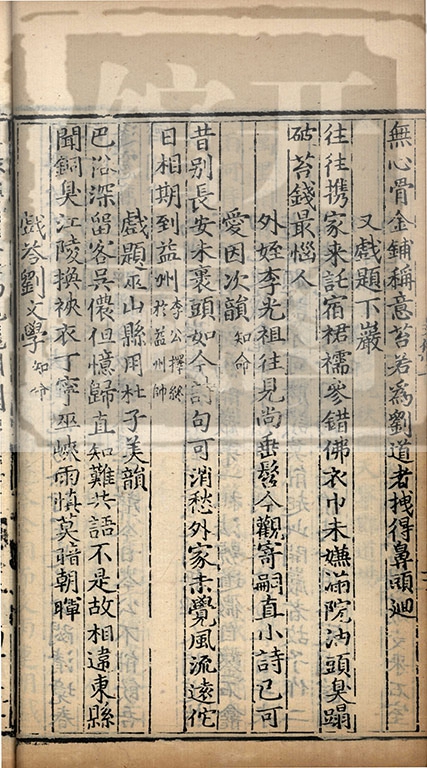 無心骨金鋪稱意苔若為劉道者拽得鼻頭廻
又戲題下巖
往往携家來託宿裙襦參錯佛衣巾未嫌滿院油頭臭蹋
破苔錢最惱人
外姪李光祖往見尚垂髫今觀寄嗣直小詩已可
愛因次韻知命
昔別長安未裹頭如今詩句可消愁外家未覺風流遠佗
日相期到益州李公擇終於益州帥
戲題巫山縣用杜子美韻
巴俗深留客吳儂但憶歸直知難共語不是故相違東縣
聞銅臭江陵換裌衣丁寧巫峽雨慎莫暗朝暉
戲答劉文學知命